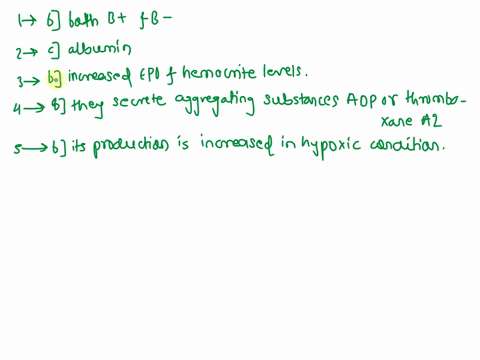 1→ b] both B+ & B-
2→ c] albumin
3→ b.] increased EPO & hemocrite levels.
4→ 8] they secrete aggregating substances ADP or thrombo-
xane A2
5→ b] its production is increased in hypoxic condition.